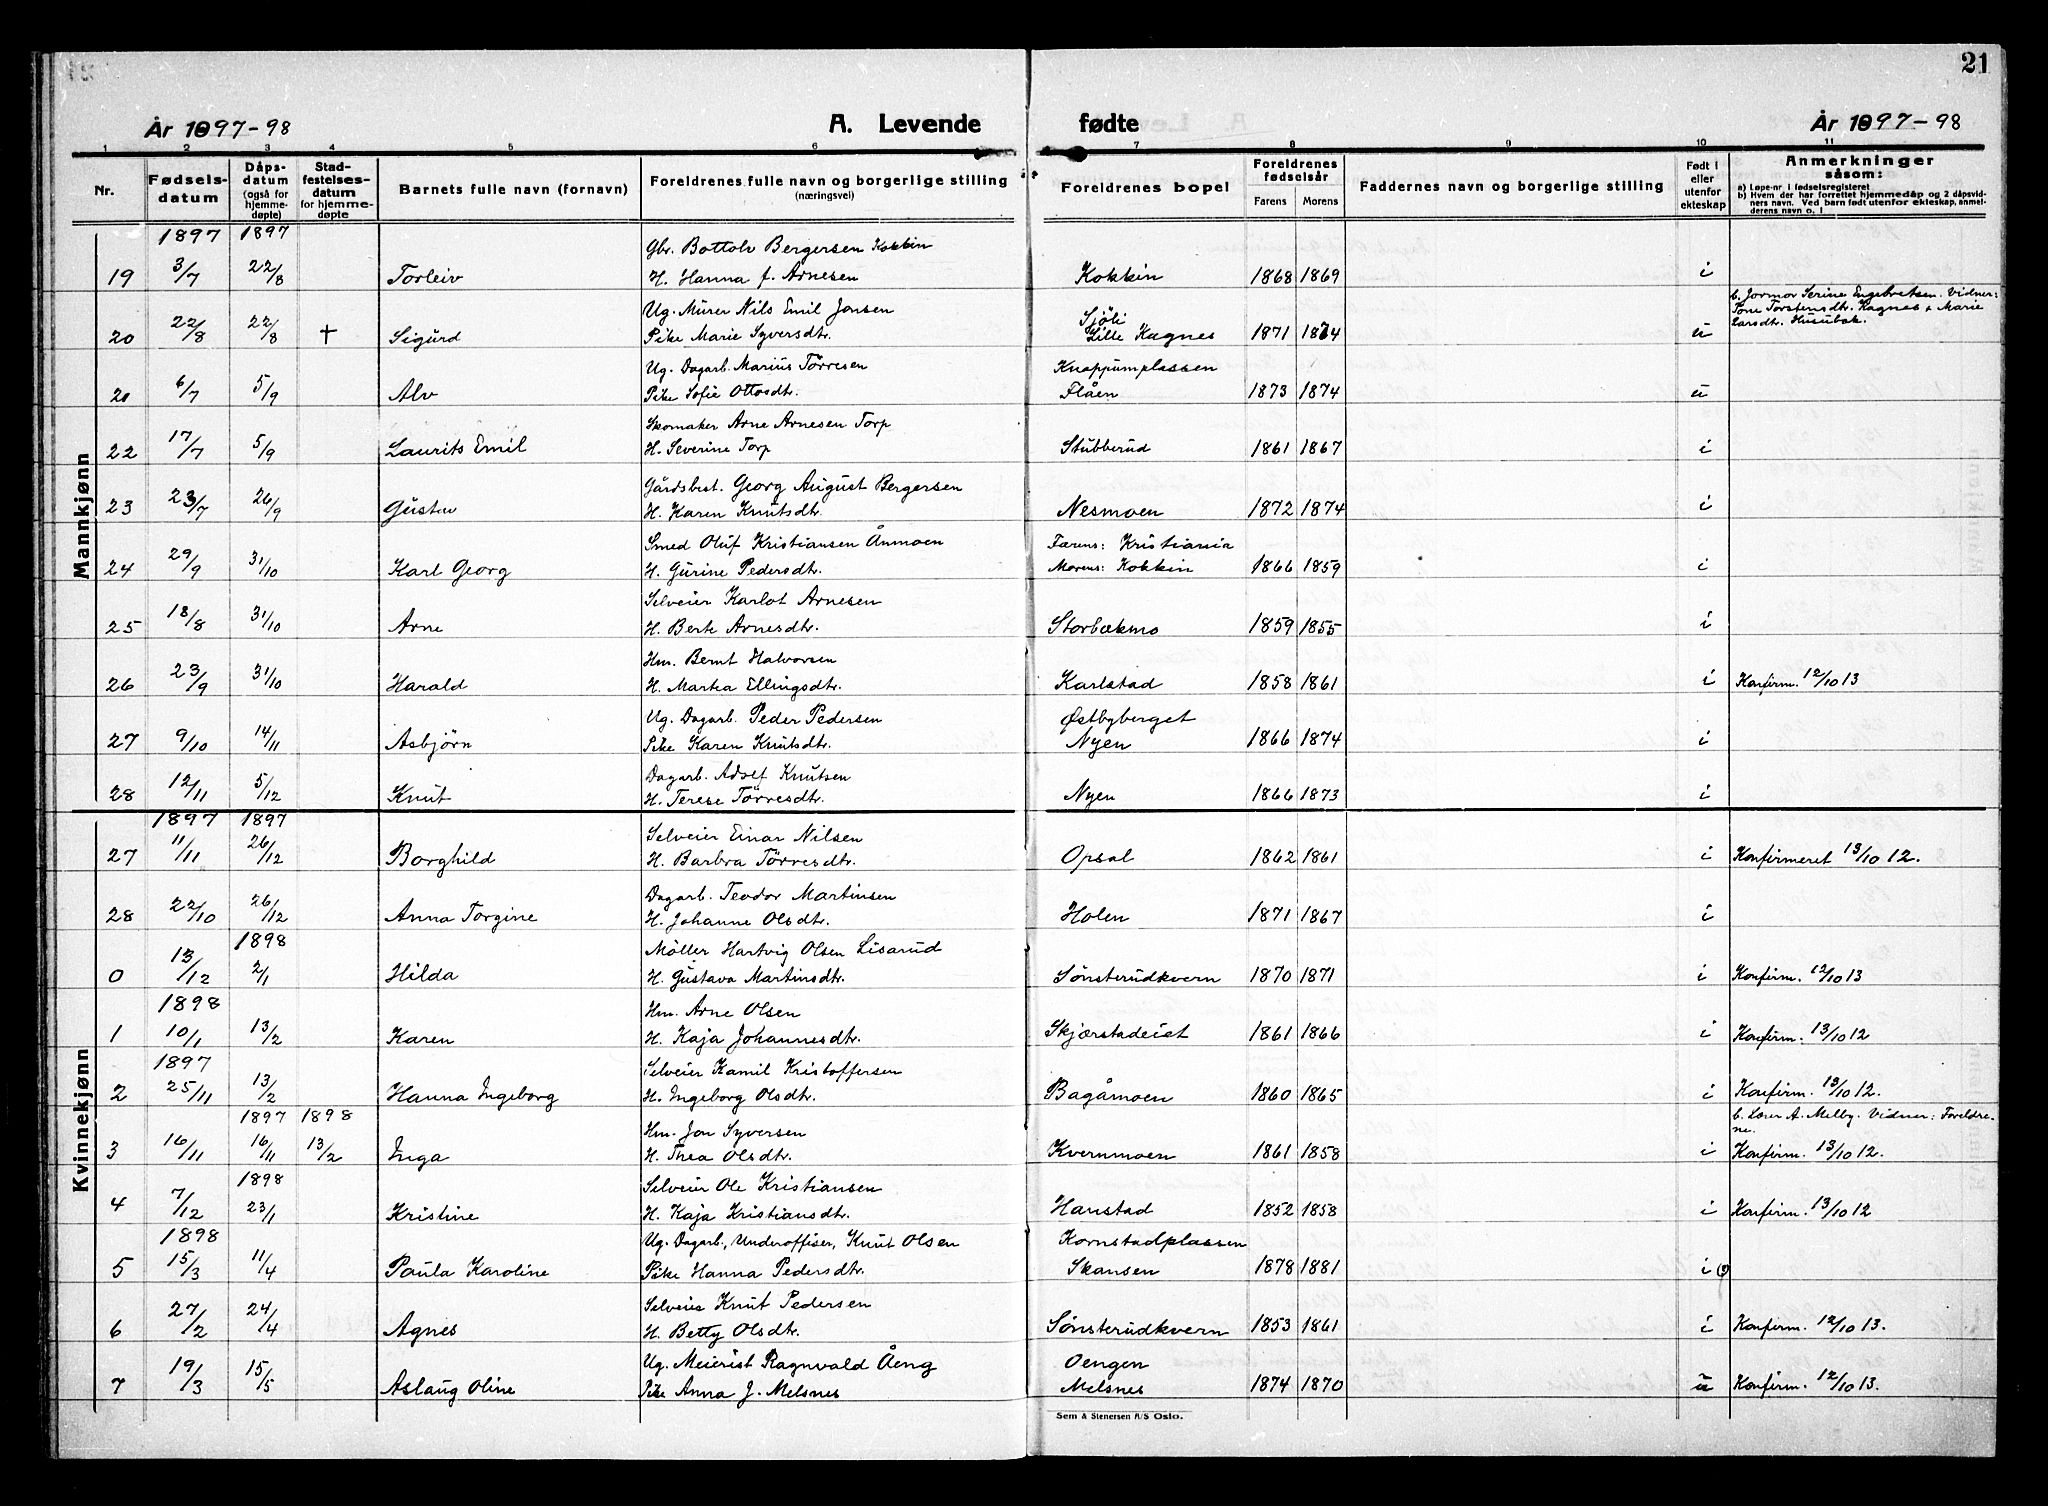 21
År 1897-98 A. Levende fødte År 1897-98
1 2 3 4 5 6 7 8 9 10 11
Nr. Fødselsdatum Dåpsdatum (også for hjemmedøpte) Stadfestelsesdatum for hjemmedøpte Barnets fulle navn (fornavn) Foreldrenes fulle navn og borgerlige stilling (næringsvei) Foreldrenes bopel Foreldrenes fødselsår Farens Morens Faddernes navn og borgerlige stilling Født i eller utenfor ekteskap Anmerkninger såsom:
a) Løpe-nr i fødselsregisteret
b) Hvem der har forrettet hjemmedåp og 2 dåpsvidners navn. Ved barn født utenfor ekteskap, anmelderens navn o. l
Mannkjønn
1897 1897 Gbr. Bottolv Bergersen Kokkin
19 3/7 22/8 Torleiv H. Hanna f. Arnesen Kokkin 1868 1869 i
Ug. Murer Nils Emil Jonsen Sjöli b. Jormor Serine Engebretsen. Vidner:
Tone Torstensdtr. Kagnes + Marie
20 22/8 22/8 † Sigurd Pike Marie Syversdtr. Lille Kagnes 1871 1874 u Larsdtr. Husubak.
Ug. Dagarb. Marius Törresen Knappumplassen
21 6/7 5/9 Alv Pike Sofie Ottosdtr. Flåen 1873 1874 u
Skomaker Arne Arnesen Torp
22 17/7 5/9 Laurits Emil H. Severine Torp Stubberud 1861 1867 i
Gårdsbest. Georg August Bergersen
23 23/7 26/9 Gustav H. Karen Knutsdtr. Nesmoen 1872 1874 i
Smed Oluf Kristiansen Ånmoen Farens: Kristiania
24 29/9 31/10 Karl Georg H. Gurine Pedersdtr. Morens: Kokkin 1866 1859 i
Selveier Karlot Arnesen
25 18/8 31/10 Arne H. Berte Arnesdtr. Storbækmo 1859 1855 i
Hm. Bernt Halvorsen
26 23/9 31/10 Harald H. Martea Ellingsdtr. Karlstad 1858 1861 i Konfirm. 12/10 13
Ug. Dagarb. Peder Pedersen Østbyberget
27 9/10 14/11 Asbjörn Pike Karen Knutsdtr. Nyen 1866 1874 i
Dagarb. Adolf Knutsen
28 12/11 5/12 Knut H. Terese Törresdtr. Nyen 1866 1873 i
Kvinnekjønn
1897 1897 Selveier Einar Nilsen
27 11/11 26/12 Borghild H. Barbra Törresdtr. Opsal 1862 1861 i Konfirmeret 13/10 12.
Dagarb. Teodor Martinsen
28 22/10 26/12 Anna Torgine H. Johanne Olsdtr. Holen 1871 1867 i
1898 Möller Hartvig Olsen Lisarud
0 13/12 2/1 Hilda H. Gustava Martinsdtr. Sönsterudkvern 1870 1871 i Konfirm. 12/10 13
1898 Hm. Arne Olsen
1 10/1 13/2 Karen H. Kaja Johannesdtr. Skjærstadeiet 1861 1866 i Konfirm. 13/10 12
1897 Selveier Kamil Kristoffersen
2 25/11 13/2 Hanna Ingeborg H. Ingeborg Olsdtr. Bagåmoen 1860 1865 i Konfirm. 13/10 12.
1897 1898 Hm. Jon Syversen b. Lærer A. Melby. Vidner: Foreldrene.
3 16/11 16/11 13/2 Inga H. Thea Olsdtr. Kvernmoen 1861 1858 i Konfirm. 13/10 12.
1898 Selveier Ole Kristiansen
4 7/12 23/1 Kristine H. Kaja Kristiansdtr. Hanstad 1852 1858 i Konfirm. 13/10 12
1898 Ug. Dagarb., Underoffiser, Knut Olsen Kornstadplassen
5 15/3 11/4 Paula Karoline Pike Hanna Pedersdtr. Skansen 1878 1881 i
Selveier Knut Pedersen
6 27/2 24/4 Agnes H. Betty Olsdtr. Sönsterudkvern 1853 1861 i Konfirm. 12/10 13.
Ug. Meierist Ragnvald Åeng Oengen
7 19/3 15/5 Aslaug Oline Pike Anna J. Melsnes Melsnes 1874 1870 u Konfirm. 12/10 13.
Sem & Stenersen A/S Oslo.